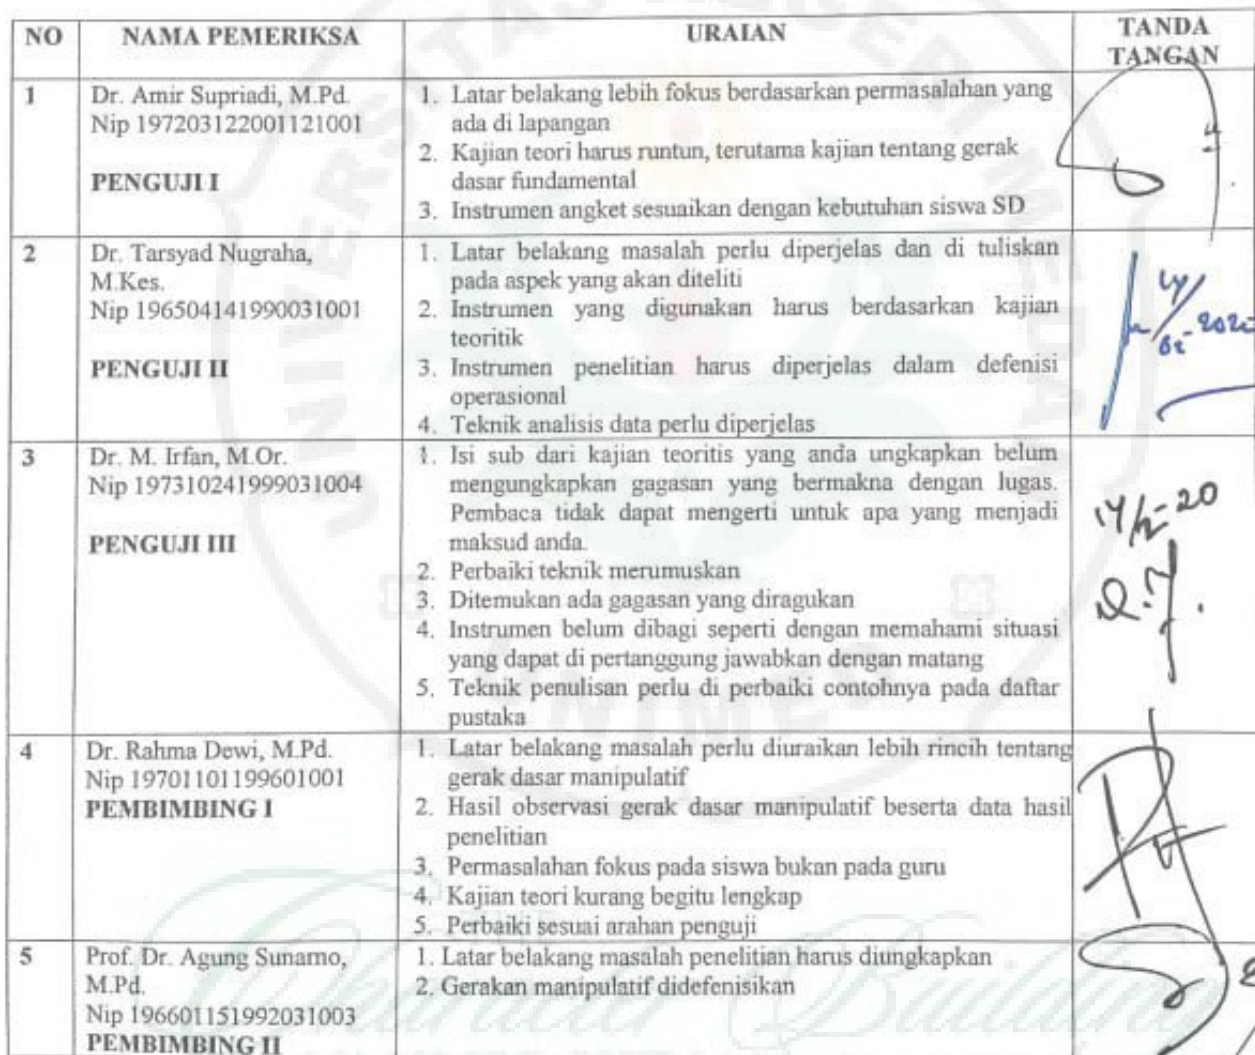 NO NAMA PEMERIKSA URAIAN TANDA TANGAN
1
Dr. Amir Supriadi, M.Pd
Nip 197203122001121001
PENGUJI I
1. Latar belakang lebih fokus berdasarkan permasalahan yang
ada di lapangan
2. Kajian teori harus runtun, terutama kajian tentang gerak
dasar fundamental
3. Instrumen angket sesuaikan dengan kebutuhan siswa SD
2
Dr. Tarsyad Nugraha,
M.Kes.
Nip 196504141990031001
PENGUJI II
1. Latar belakang masalah perlu diperjelas dan di tuliskan
pada aspek yang akan diteliti
2. Instrumen yang digunakan harus berdasarkan kajian
teoritik
3. Instrumen penelitian harus diperjelas dalam defenisi
operasional
4. Teknik analisis data perlu diperjelas
3
Dr. M. Irfan, M.Or.
Nip 197310241999031004
PENGUJI III
1. Isi sub dari kajian teoritis yang anda ungkapkan belum
mengungkapkan gagasan yang bermakna dengan lugas.
Pembaca tidak dapat mengerti untuk apa yang menjadi
maksud anda.
2. Perbaiki teknik merumuskan
3. Ditemukan ada gagasan yang diragukan
4. Instrumen belum dibagi seperti dengan memahami situasi
yang dapat di pertanggung jawabkan dengan matang
5. Teknik penulisan perlu di perbaiki contohnya pada daftar
pustaka
4
Dr. Rahma Dewi, M.Pd.
Nip 19701101199601001
PEMBIMBING I
1. Latar belakang masalah perlu diuraikan lebih rincih tentang
gerak dasar manipulatif
2. Hasil observasi gerak dasar manipulatif beserta data hasil
penelitian
3. Permasalahan fokus pada siswa bukan pada guru
4. Kajian teori kurang begitu lengkap
5. Perbaiki sesuai arahan penguji
5
Prof. Dr. Agung Sunarno,
M.Pd.
Nip 196601151992031003
PEMBIMBING II
1. Latar belakang masalah penelitian harus diungkapkan
2. Gerakan manipulatif didefenisikan
UNIVERSITAS NEGERI MEDAN
UNIMED
Character Building